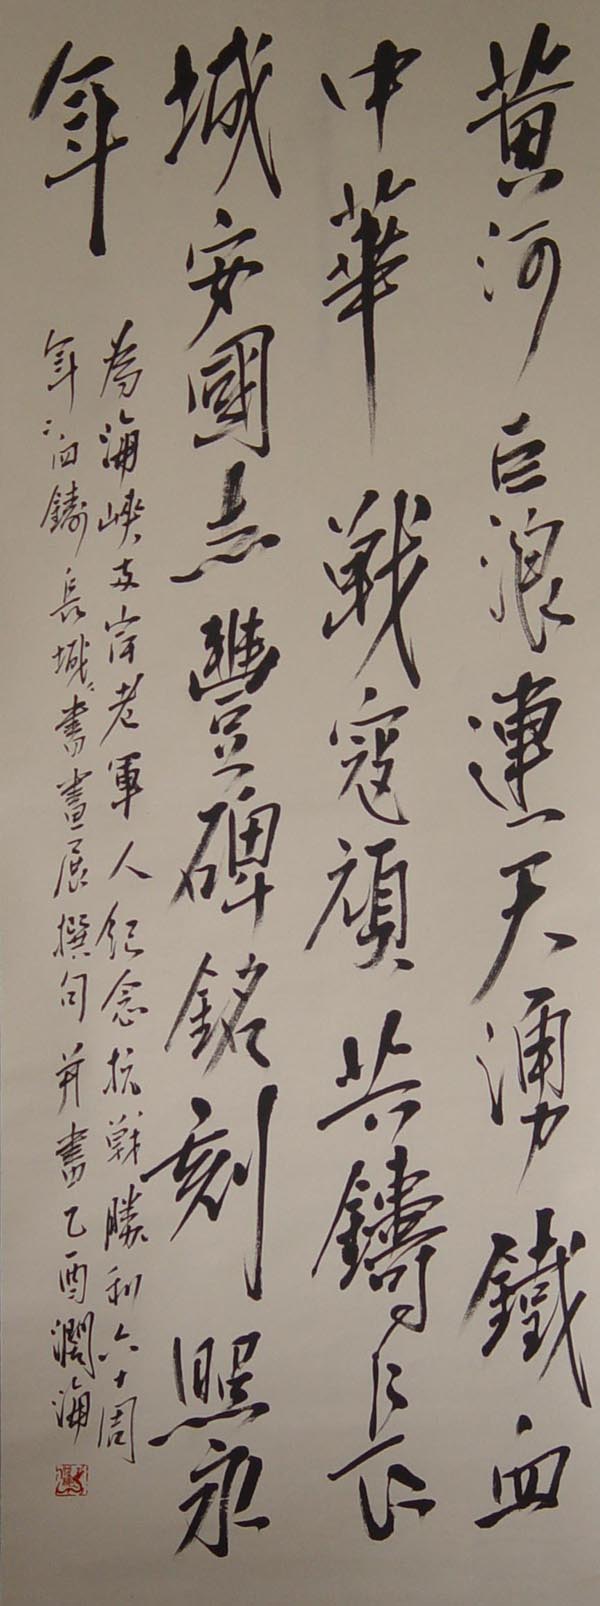 黄河巨浪連天湧鐵血
中華戰寇頑共鑄長
城安國志豐碑銘刻照永
年
為海峽两岸老軍人紀念抗戰勝利六十周
年"血鑄長城"書畫展撰句并書乙酉潤海